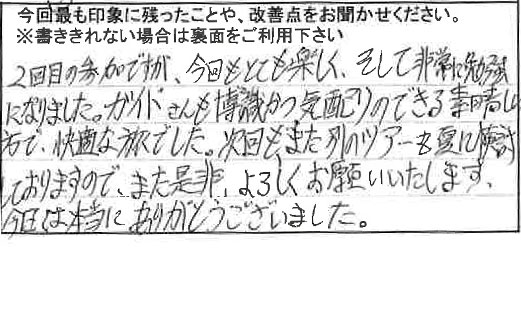 今回最も印象に残ったことや、改善点をお聞かせください。
※書ききれない場合は裏面をご利用下さい
2回目の参加ですが、今回もとても楽しく、そして非常に勉強
になりました。ガイドさんも博識かつ気配りのできる素晴らしい
方で、快適な旅でした。次回もまた別のツアーを夏に検討
しておりますので、また是非、よろしくお願いいたします。
今回は本当にありがとうございました。